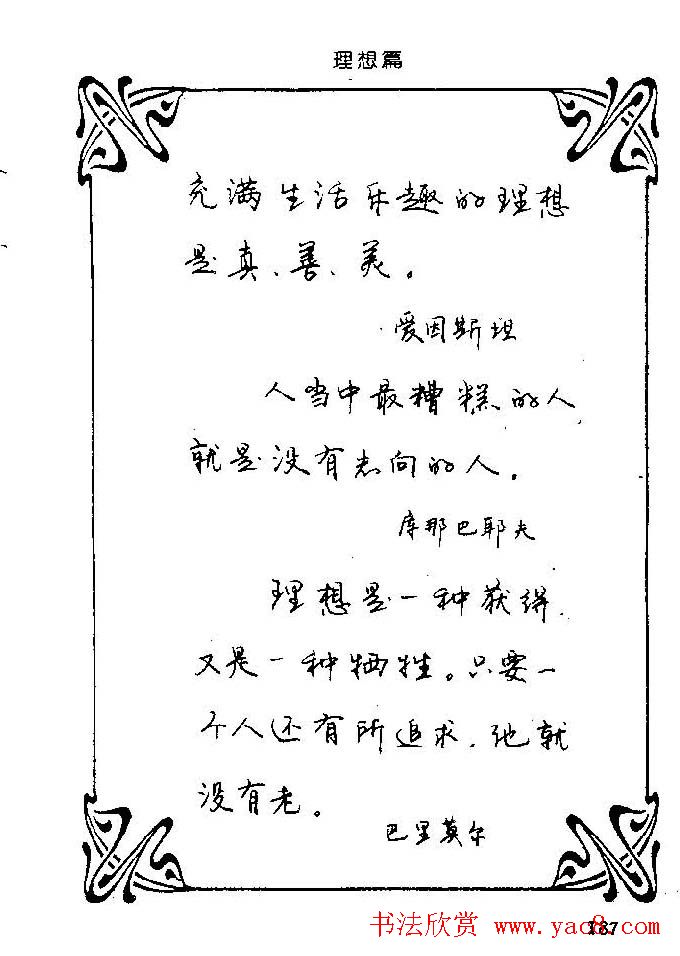 理想篇
充满生活乐趣的理想
是真、善、美。
爱因斯坦
人当中最糟糕的人,
就是没有志向的人。
库那巴耶夫
理想是一种获得,
又是一种牺牲。只要一
个人还有所追求,他就
没有老。
巴里莫尔
书法欣赏 www.yac8.com
187